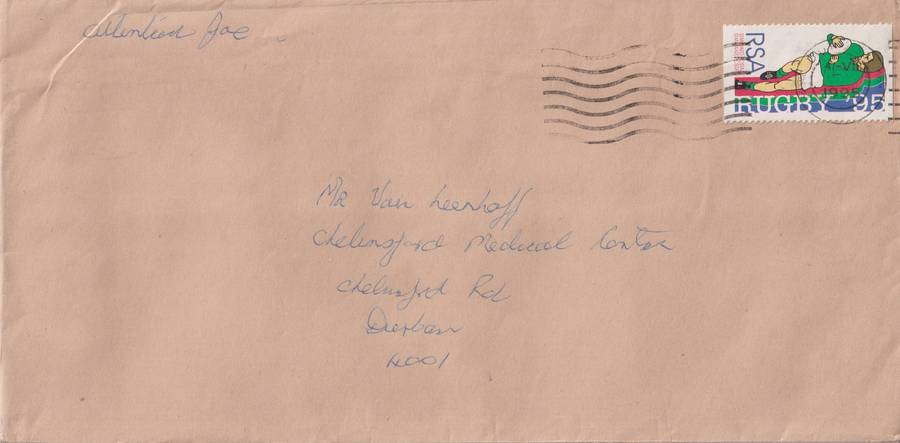 Attention Joe
RSA
RUGBY '95
1995
Mr Van Leenhoff
Chelmsford Medical Centre
Chelmsford Rd
Durban
4001